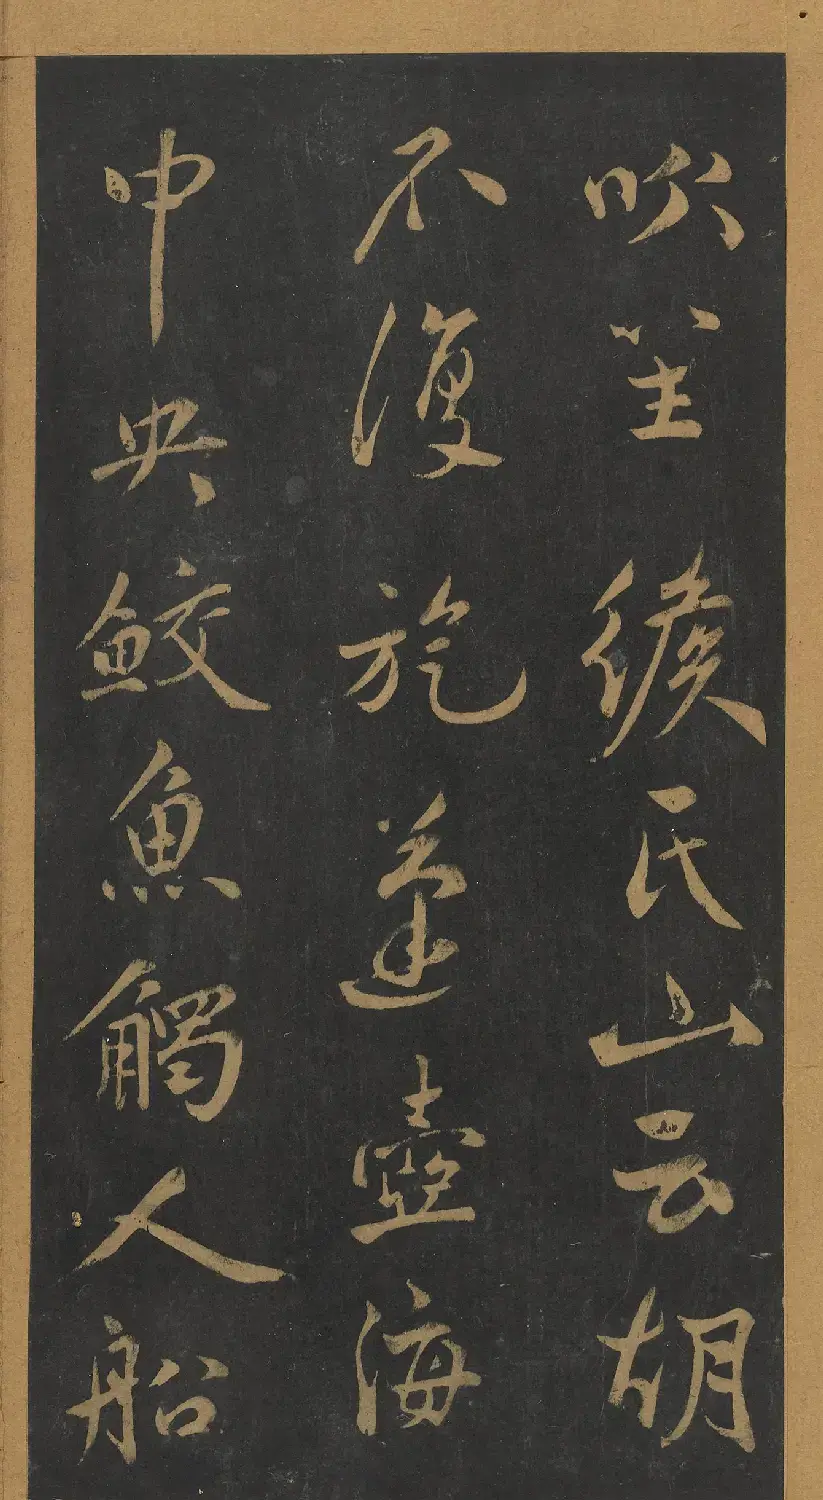 吹笙緱氏山云胡
不復旋蓬壺海
中央鮫魚觸人船